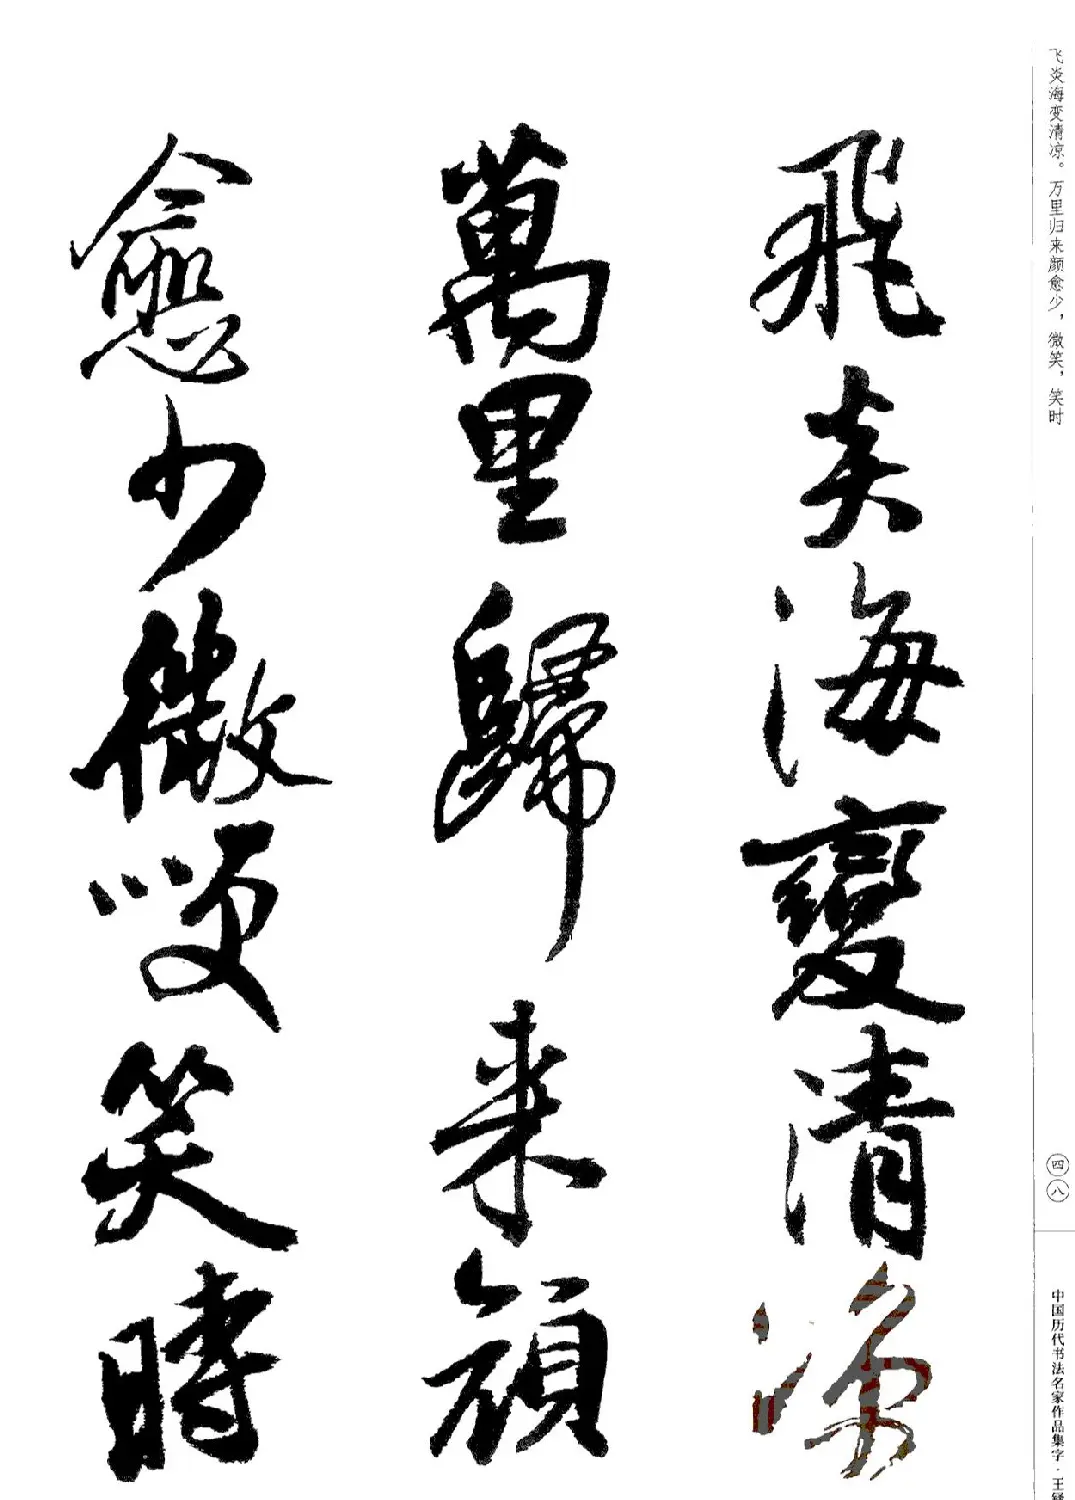 飞炎海变清凉。万里归来颜愈少，微笑，笑时
四八
中国历代书法名家作品集字·王铎
飛炎海變清涼
萬里歸来顔
愈少微笑笑時